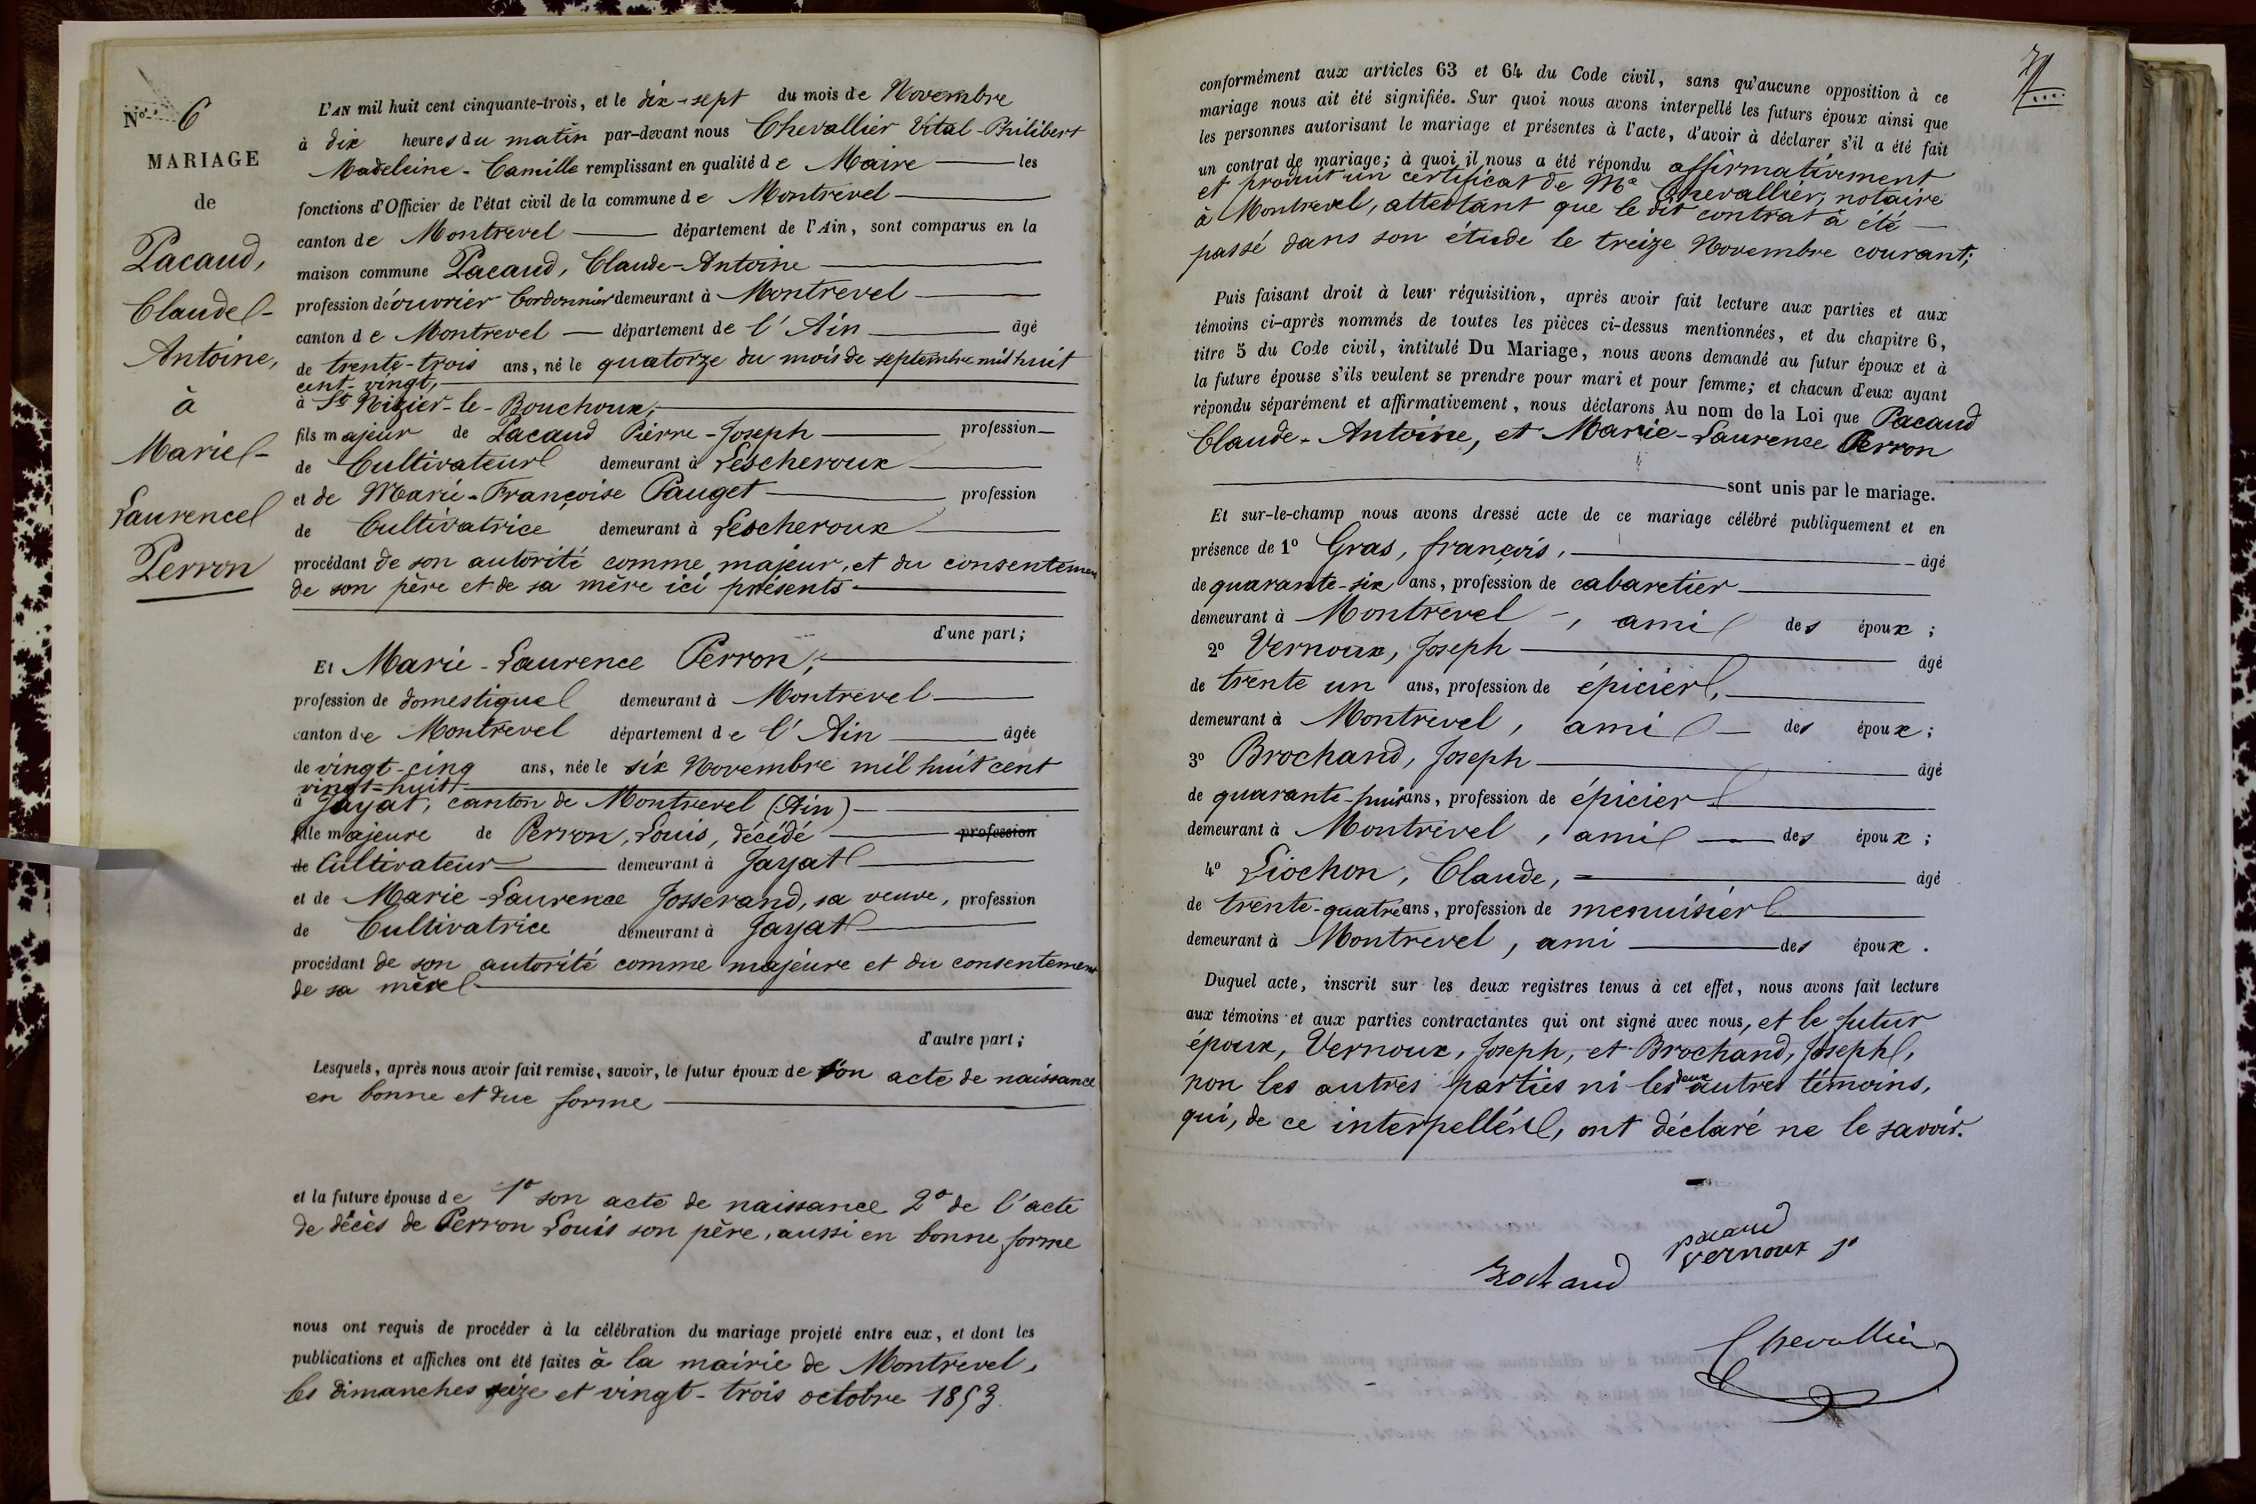 N° 6
MARIAGE
de
Pacaud,
Claude-
Antoine,
à
Marie-
Laurence
Perron
L'AN mil huit cent cinquante-trois, et le dix-sept du mois de Novembre
à dix heures du matin par-devant nous Chevallier Vital-Philibert
Madeleine-Camille remplissant en qualité de Maire les
fonctions d'Officier de l'état civil de la commune de Montrevel
canton de Montrevel département de l'Ain, sont comparus en la
maison commune Pacaud, Claude-Antoine
profession d'ouvrier Cordonnier demeurant à Montrevel
canton de Montrevel département de l'Ain âgé
de trente-trois ans, né le quatorze du mois de septembre mil huit
cent-vingt,
à St Nizier-le-Bouchoux,
fils majeur de Pacaud Pierre-Joseph profession
de Cultivateur demeurant à Lescheroux
et de Marie-Françoise Pauget profession
de Cultivatrice demeurant à Lescheroux
procédant de son autorité comme majeur, et du consentement
de son père et de sa mère ici présents
d'une part;
Et Marie-Laurence Perron,
profession de domestique demeurant à Montrevel
canton de Montrevel département de l'Ain âgée
de vingt-cinq ans, née le six Novembre mil huit cent
vingt-huit
à Jayat, canton de Montrevel (Ain)
fille majeure de Perron, Louis, décédé profession
de Cultivateur demeurant à Jayat
et de Marie-Laurence Josserand, sa veuve, profession
de Cultivatrice demeurant à Jayat
procédant de son autorité comme majeure et du consentement
de sa mère
d'autre part;
Lesquels, après nous avoir fait remise, savoir, le futur époux de son acte de naissance
en bonne et due forme
et la future épouse de 1° son acte de naissance 2° de l'acte
de décès de Perron Louis son père, aussi en bonne forme
nous ont requis de procéder à la célébration du mariage projeté entre eux, et dont les
publications et affiches ont été faites à la mairie de Montrevel,
les dimanches seize et vingt-trois octobre 1853.
conformément aux articles 63 et 64 du Code civil, sans qu'aucune opposition à ce
mariage nous ait été signifiée. Sur quoi nous avons interpellé les futurs époux ainsi que
les personnes autorisant le mariage et présentes à l'acte, d'avoir à déclarer s'il a été fait
un contrat de mariage; à quoi il nous a été répondu affirmativement
et produit un certificat de Me Chevallier, notaire
à Montrevel, attestant que le dit contrat à été
passé dans son étude le treize Novembre courant;
Puis faisant droit à leur réquisition, après avoir fait lecture aux parties et aux
témoins ci-après nommés de toutes les pièces ci-dessus mentionnées, et du chapitre 6,
titre 5 du Code civil, intitulé Du Mariage, nous avons demandé au futur époux et à
la future épouse s'ils veulent se prendre pour mari et pour femme; et chacun d'eux ayant
répondu séparément et affirmativement, nous déclarons Au nom de la Loi que Pacaud
Claude-Antoine, et Marie-Laurence Perron
sont unis par le mariage.
Et sur-le-champ nous avons dressé acte de ce mariage célébré publiquement et en
présence de 1° Gras, françois, âgé
de quarante-six ans, profession de cabaretier
demeurant à Montrevel, ami des époux;
2° Vernoux, Joseph âgé
de trente un ans, profession de épicier,
demeurant à Montrevel, ami des époux;
3° Brochand, Joseph âgé
de quarante-huit ans, profession de épicier
demeurant à Montrevel, ami des époux;
4° Liochon, Claude, âgé
de trente-quatre ans, profession de menuisier
demeurant à Montrevel, ami des époux.
Duquel acte, inscrit sur les deux registres tenus à cet effet, nous avons fait lecture
aux témoins et aux parties contractantes qui ont signé avec nous, et le futur
époux, Vernoux, Joseph, et Brochand, Joseph,
non les autres parties ni les deux autres témoins,
qui, de ce interpellés, ont déclaré ne le savoir.
pacaud
Vernoux Jh
Brochand
Chevallier